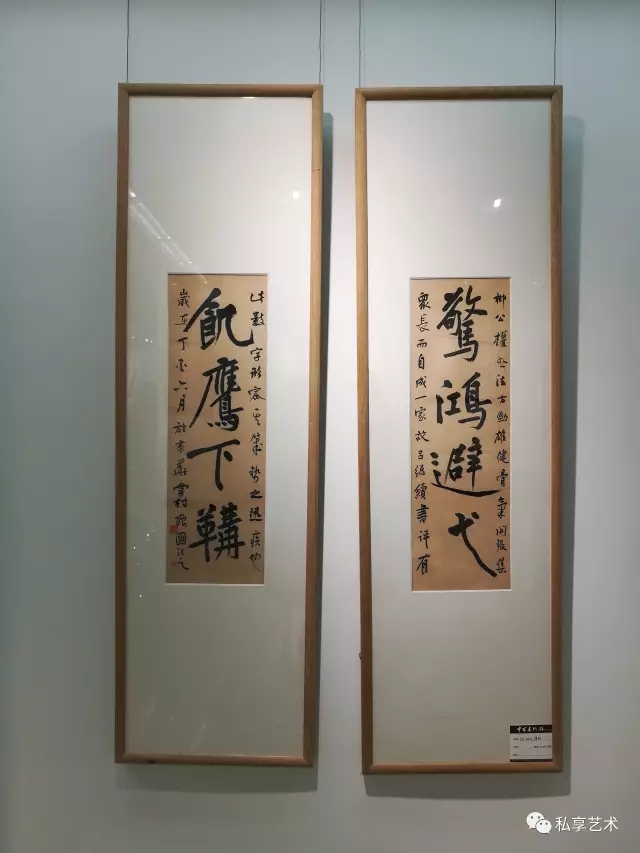 柳公權书法古勁雄健骨氣開張集
驚鴻避弋
眾長而自成一家故呂總續書評有
此數字形容其筆勢之迅疾也
飢鷹下鞲
歲在丁酉六月於京華振國記之
私享艺术